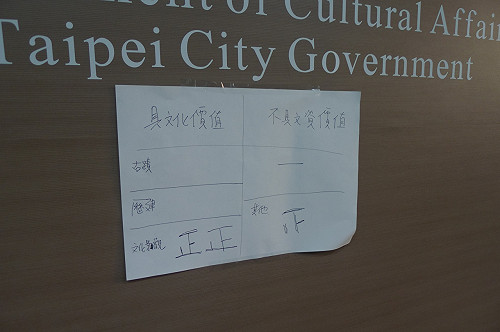 ment of Cultural Affair
Taipei City Government
具文化價值
不具文資價值
古蹟
一
歷建
文化景觀 正正
其他 正